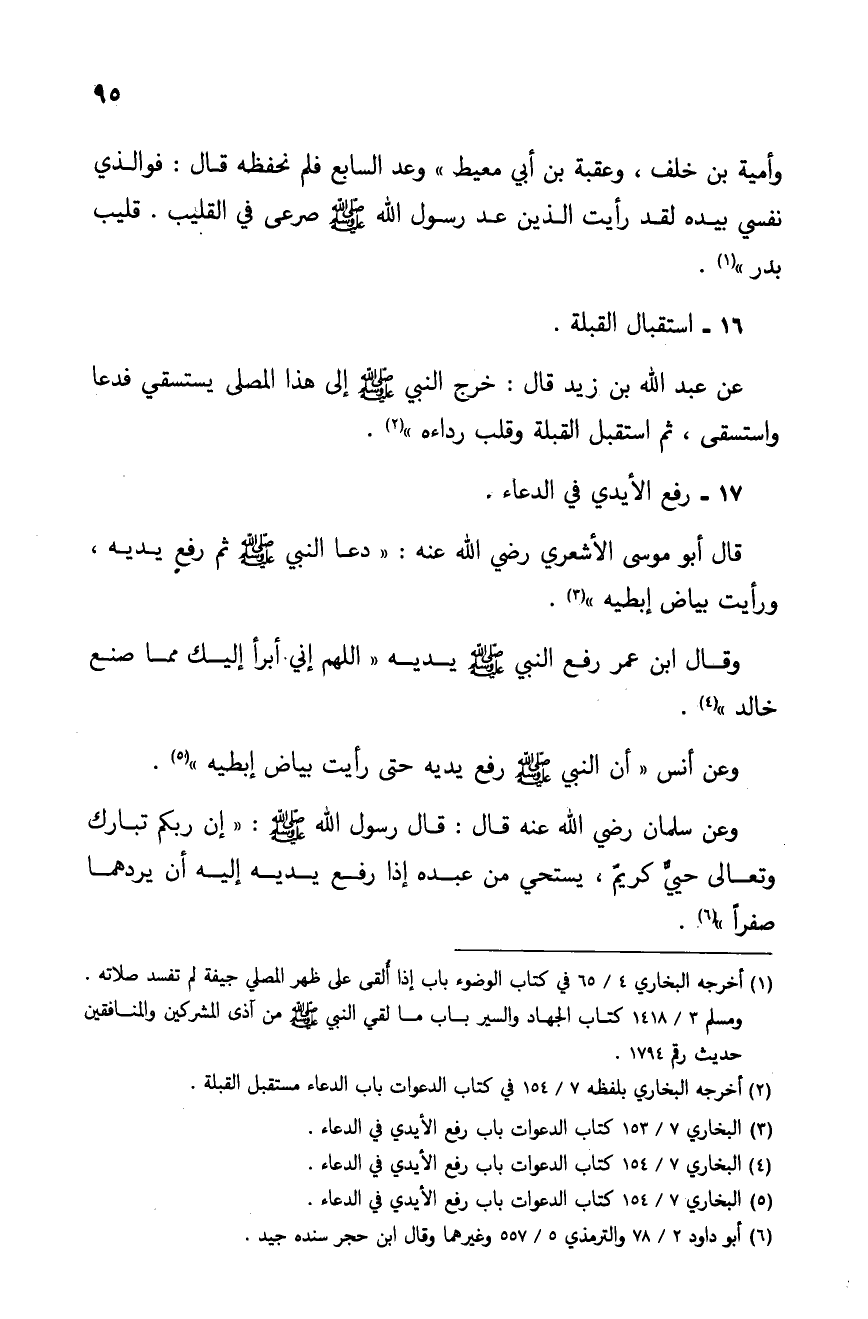 ٩٥
وأمية بن خلف ، وعقبة بن أبي معيط » وعد السابع فلم نحفظه قـال : فوالـذي
نفسي بيـده لقـد رأيت الـذين عـد رسـول الله ﷺ صرعى في القليب . قليب
بدر »(١) .
١٦ ـ استقبال القبلة .
عن عبد الله بن زيد قال : خرج النبي ﷺ إلى هذا المصلى يستسقي فدعا
واستسقى ، ثم استقبل القبلة وقلب رداءه »(٢) .
١٧ ـ رفع الأيدي في الدعاء .
قال أبو موسى الأشعري رضي الله عنه : « دعـا النبي ﷺ ثم رفع يـديـه ،
ورأيت بياض إبطيه »(٣) .
وقـال ابن عمر رفع النبي ﷺ يـديـه « اللهم إني أبرأ إليـك ممـا صنـع
خالد »(٤) .
وعن أنس « أن النبي ﷺ رفع يديه حتى رأيت بياض إبطيه »(٥) .
وعن سلمان رضي الله عنه قـال : قـال رسول الله ﷺ : « إن ربكم تبـارك
وتعـالى حييٌّ كريمٌ ، يستحي من عبـده إذا رفـع يـديـه إليـه أن يردهمـا
صفراً »(٦) .
(١) أخرجه البخاري ٤ / ٦٥ في كتاب الوضوء باب إذا أُلقى على ظهر المصلي جيفة لم تفسد صلاته .
ومسلم ٣ / ١٤١٨ كتـاب الجهـاد والسير بـاب مـا لقي النبي ﷺ من آذى المشركين والمنـافقين
حديث رقم ١٧٩٤ .
(٢) أخرجه البخاري بلفظه ٧ / ١٥٤ في كتاب الدعوات باب الدعاء مستقبل القبلة .
(٣) البخاري ٧ / ١٥٣ كتاب الدعوات باب رفع الأيدي في الدعاء .
(٤) البخاري ٧ / ١٥٤ كتاب الدعوات باب رفع الأيدي في الدعاء .
(٥) البخاري ٧ / ١٥٤ كتاب الدعوات باب رفع الأيدي في الدعاء .
(٦) أبو داود ٢ / ٧٨ والترمذي ٥ / ٥٥٧ وغيرهما وقال ابن حجر سنده جيد .